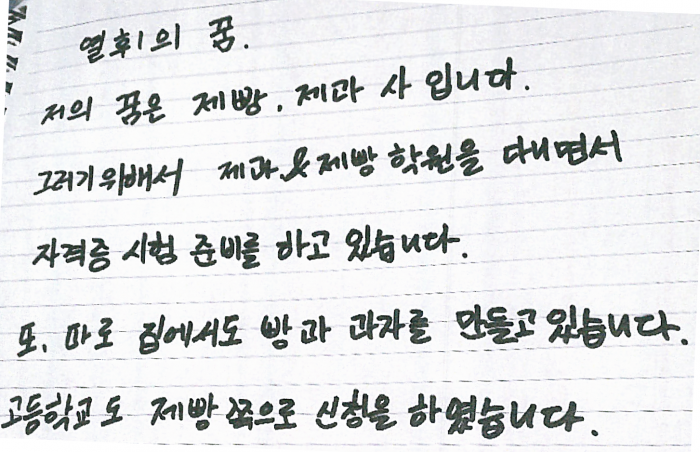 열휘의 꿈.
저의 꿈은 제빵, 제과 사 입니다.
그러기위해서 제과&제빵 학원을 다니면서
자격증 시험 준비를 하고 있습니다.
또, 따로 집에서도 빵과 과자를 만들고 있습니다.
고등학교도 제빵 쪽으로 신청을 하였습니다.